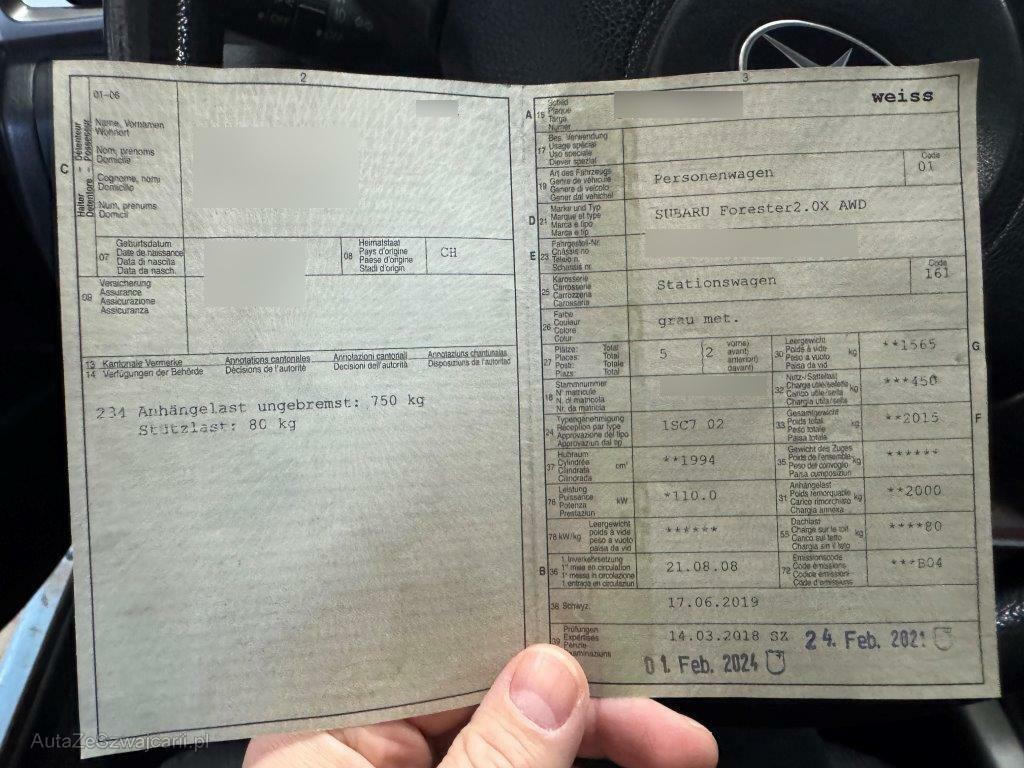 OFF
10
2
01-06
C
Halter - Détenteur
Detentore - Possesseur
Name, Vornamen
Wohnort
Nom, prénoms
Domicile
Cognome, nomi
Domicilio
Num, prenums
Domicil
07
Geburtsdatum
Date de naissance
Data di nascita
Data da nasch.
08
Heimatstaat
Pays d'origine
Paese d'origine
Stadi d'origin
CH
09
Versicherung
Assurance
Assicurazione
Assicuranza
13 Kantonale Vermerke
Annotations cantonales
Annotazioni cantonali
Annotaziuns chantunalas
14 Verfügungen der Behörde
Décisions de l'autorité
Decisioni dell'autorità
Disposiziuns da l'autoritad
234 Anhängelast ungebremst: 750 kg
Stützlast: 80 kg
3
A
15
Schild
Plaque
Targa
Numer
weiss
17
Bes. Verwendung
Usage spécial
Uso speciale
Diever spezial
19
Art des Fahrzeugs
Genre de véhicule
Genere di veicolo
Gener dal vehichel
Personenwagen
Code
01
D
21
Marke und Typ
Marque et type
Marca e tipo
Marca e tip
SUBARU Forester2.0X AWD
E
23
Fahrgestell-Nr.
Châssis no
Telaio n.
Schassis nr.
25
Karosserie
Carrosserie
Carrozzeria
Carossaria
Stationswagen
Code
161
26
Farbe
Couleur
Colore
Colur
grau met.
27
Plätze: Total
Places: Total
Posti: Totale
Plazs: Total
5
2
vorne)
avant)
anteriori)
davant)
30
Leergewicht
Poids à vide
Peso a vuoto
Paisa da vid
kg
**1565
G
18
Stammnummer
N° matricule
N. di matricola
Nr. da matricla
32
Nutz-/Sattellast
Charge utile/sellette
Carico utile/sella
Chargia utila/sella
kg
***450
24
Typengenehmigung
Réception par type
Approvazione del tipo
Approvaziun dal tip
1SC7 02
33
Gesamtgewicht
Poids total
Peso totale
Paisa totala
kg
**2015
F
37
Hubraum
Cylindrée
Cilindrata
Cilindrada
cm³
**1994
35
Gewicht des Zuges
Poids de l'ensemble
Peso del convoglio
Paisa cumposiziun
kg
******
76
Leistung
Puissance
Potenza
Prestaziun
kW
*110.0
31
Anhängelast
Poids remorquable
Carico rimorchiato
Chargia annexa
kg
**2000
78 kW/kg
Leergewicht
poids à vide
peso a vuoto
paisa da vid
******
55
Dachlast
Charge sur le toit
Carico sul tetto
Chargia sin il tetg
kg
****80
B
36
1. Inverkehrsetzung
1re mise en circulation
1a messa in circolazione
1. entrada en circulaziun
21.08.08
72
Emissionscode
Code émissions
Codice emissioni
Code d'emissiuns
***B04
38 Schwyz,
17.06.2019
39
Prüfungen
Expertises
14.03.2018 SZ
24. Feb. 2021
01. Feb. 2024
AutaZeSzwajcarii.pl